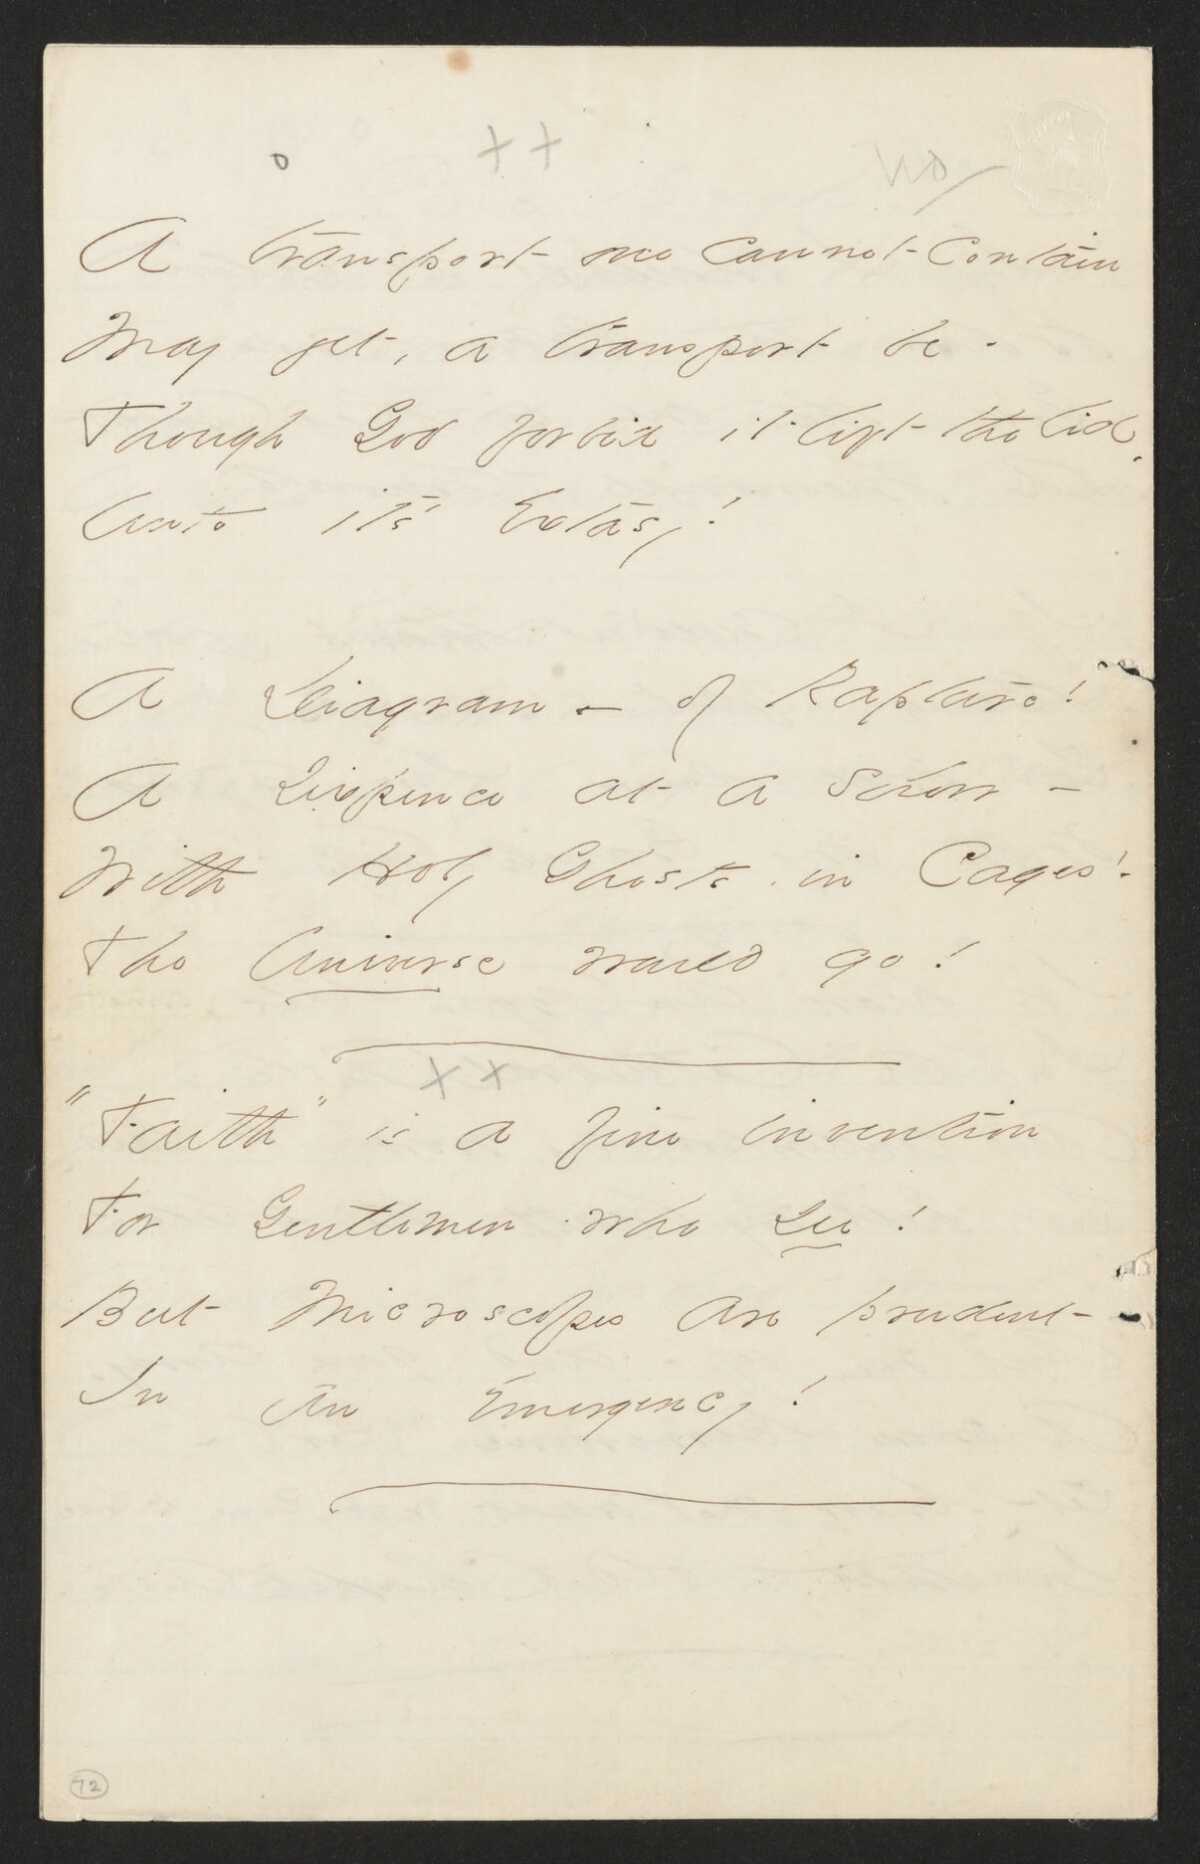 o ++
A transport one cannot contain
May yet, a transport be -
Though God forbid it lift the lid,
Unto it's Extasy!
A Diagram - of Rapture!
A Sixpence at a Show -
With Holy Ghosts in Cages!
The Universe would go!
x x
"Faith" is a fine invention
For Gentlemen who see!
But Microscopes are prudent
In an Emergency!
72